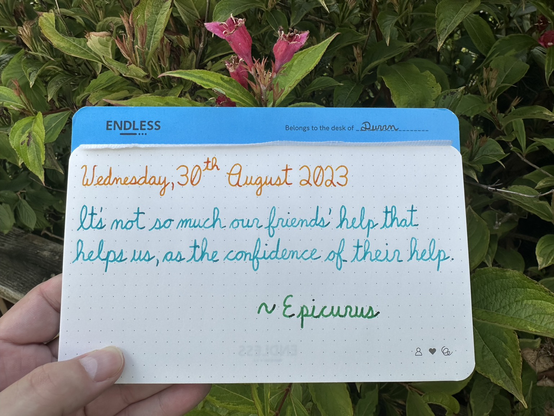 ENDLESS
Belongs to the desk of Duran
Wednesday, 30th August 2023
It's not so much our friends' help that
helps us, as the confidence of their help.
~ Epicurus
ENDLESS